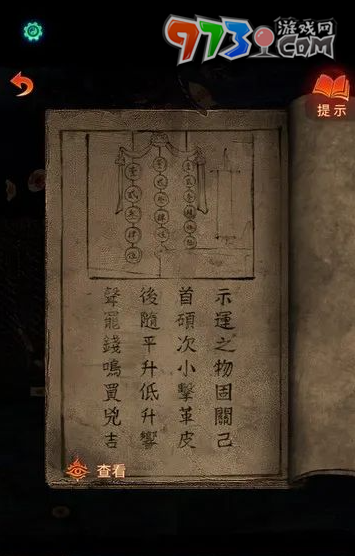 973游戏网
.COM
提示
示運之物固關己
首碩次小擊革皮
後隨平升低升響
聲罷錢鳴買兇吉
查看